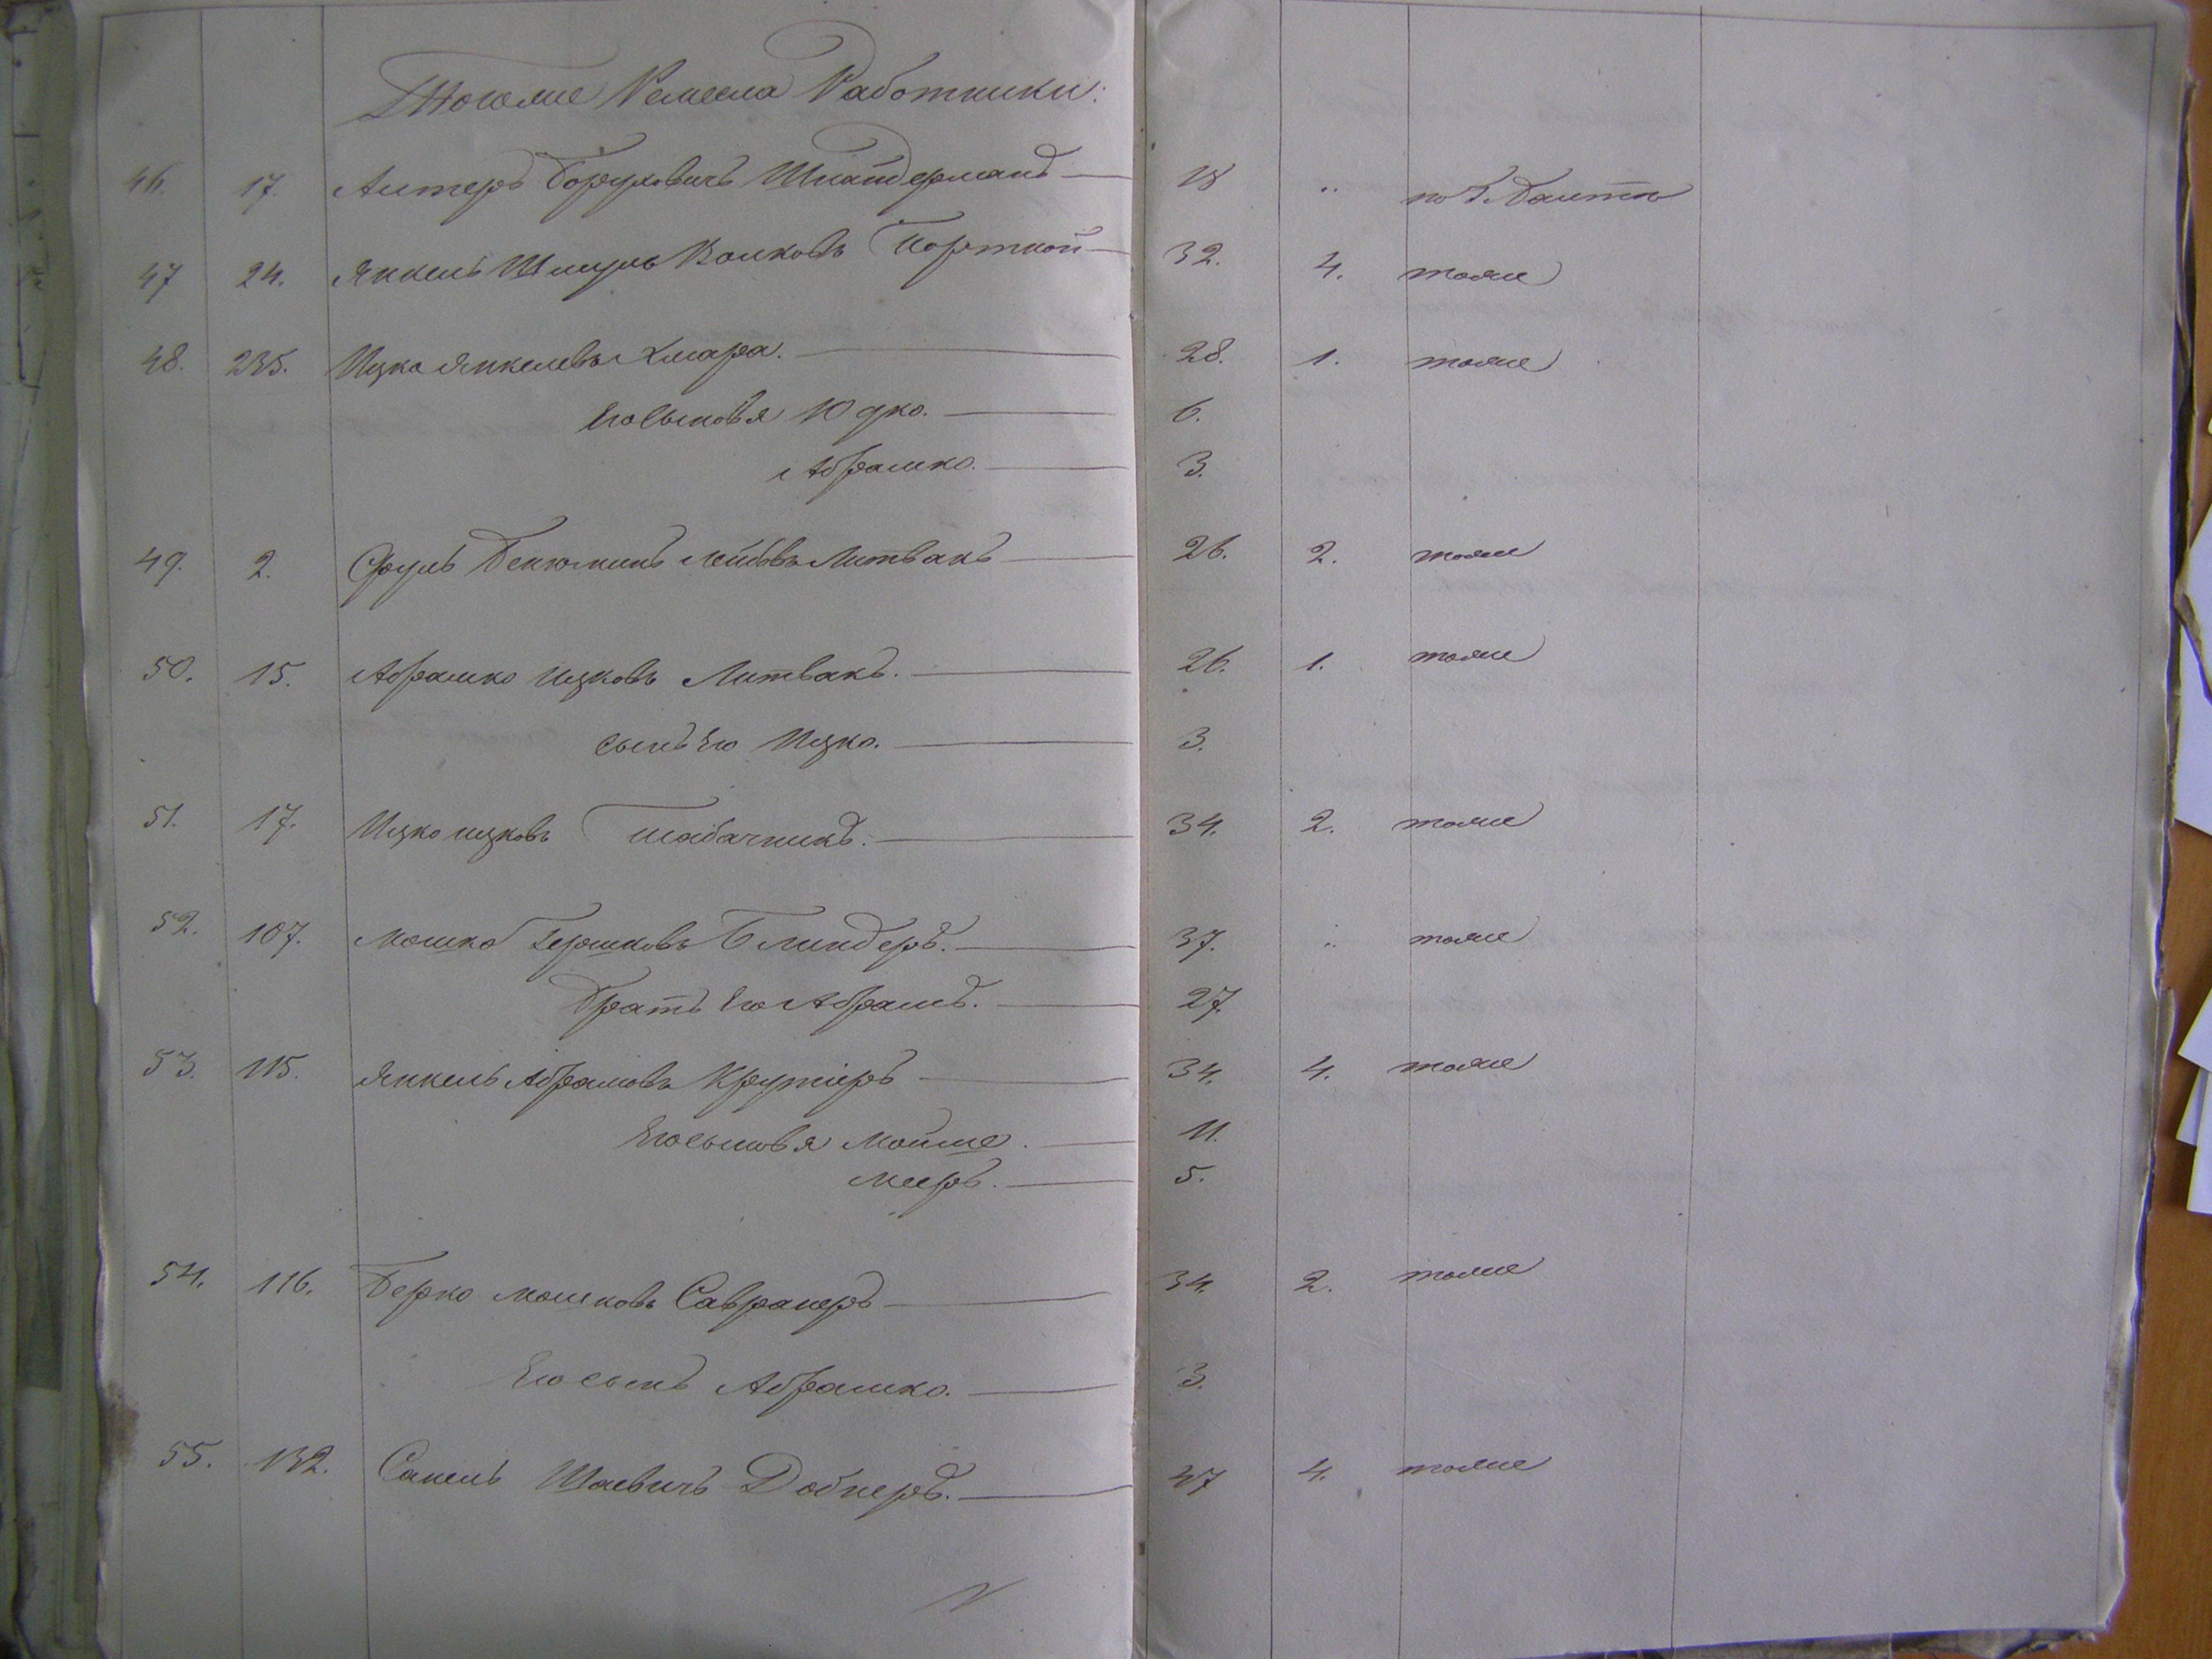 Тогоже Ремесла Работники:
46. 17. Алтеръ Боруховичъ Шнайдерманъ 18 " по г. Балтѣ
47 24. Янкель Шмуль Волковъ Портной 32. 4. тоже
48. 235. Ицко Янкелевъ Хмара. 28. 1. тоже
Его сыновья Юдко. 6.
Абрамко. 3.
49. 2. Сруль Бенюминъ Лейбовъ Литвакъ 26. 2. тоже
50. 15. Абрамко Ицковъ Литвакъ. 26. 1. тоже
сынъ Его Ицко. 3.
51. 17. Ицко Ицковъ Табачникъ. 34. 2. тоже
52. 107. Мошко Гершковъ Блиндеръ. 37. " тоже
Братъ Его Абрамъ. 27.
53. 115. Янкель Абрамовъ Крутіеръ 34. 4. тоже
Его сыновья Мойше. 11.
Мееръ. 5.
54. 116. Берко Мошковъ Савранеръ 34. 2. тоже
Его сынъ Абрамко. 3.
55. 132. Санель Шаевичъ Добнеръ. 47 4. тоже